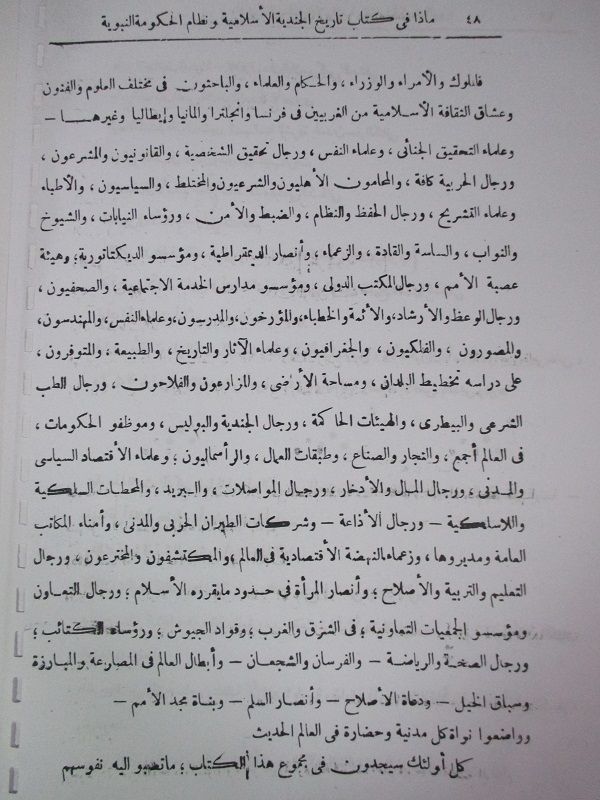 ٤٨ ماذا فى كتاب تاريخ الجندية الأسلامية ونظام الحكومة النبوية
فالملوك والأمراء والوزراء ، والحكام والعلماء ، والباحثون فى مختلف العلوم والفنون
وعشاق الثقافة الآسلامية من الغربيين فى فرنسا وانجلترا والمانيا وإيطاليا وغيرهـا –
وعلماء التحقيق الجنائى ، وعلماء النفس ، ورجال تحقيق الشخصية ، والقانونيون والمشرعون ،
ورجال الحربية كافة ، والمحامون الأهليون والشرعيون والمختلط ، والسياسيون ، والأطباء
وعلماء التشريح ، ورجال الحفظ والنظام ، والضبط والأمن ، ورؤساء النيابات ، والشيوخ
والنواب ، والساسة والقادة ، والزعماء ، وأنصار الديمقراطية ، ومؤسسو الديكتاتورية ؛ وهيئة
عصبة الأمم ، ورجال المكتب الدولى ، ومؤسسو مدارس الخدمة الاجتماعية ، والصحفيون ،
ورجال الوعظ والأرشاد ، والأئمة والخطباء ، والمؤرخون ، والمدرسون ، وعلماء النفس ، والمهندسون ،
والمصورون ، والفلكيون ، والجغرافيون ، وعلماء الآثار والتاريخ ، والطبيعة ، والمتوفرون ،
على دراسه تخطيط البلدان ، ومساحة الأرضى ، والمزارعون والفلاحون ، ورجال الطب
الشرعى والبيطرى ، والهيئات الحاكمة ، ورجال الجندية والبوليس ، وموظفو الحكومات ،
فى العالم أجمع ، والتجار والصناع ، وطبقات العمال ، والرأسماليون ؛ وعلماء الأقتصاد السياسى
والمدنى ، ورجال المال والأدخار ، ورجال المواصلات ، والبريد ، والمحطات السلكية
واللاسلكية – ورجال الأذاعة – وشركات الطيران الحربى والمدنى ، وأمناء المكاتب
العامة ومديروها ، وزعماء النهضة الأقتصادية فى العالم ؛ والمكتشفون والمخترعون ، ورجال
التعليم والتربية والأصلاح ؛ وأنصار المرأة فى حدود مايقرره الأسلام ؛ ورجال التعاون
ومؤسسو الجمعيات التعاونية ؛ فى الشرق والغرب ؛ وقواد الجيوش ؛ ورؤساء الكتائب ؛
ورجال الصحة والرياضة – والفرسان والشجعان – وأبطال العالم فى المصارعة والمبارزة
وسباق الخيل – ودعاة الأصلاح – وأنصار السلم – وبناة مجد الأمم –
وواضعوا نواة كل مدنية وحضارة فى العالم الحديث
كل أولئك سيجدون فى مجموع هذا الكتاب ؛ ماتصبو اليه نفوسهم